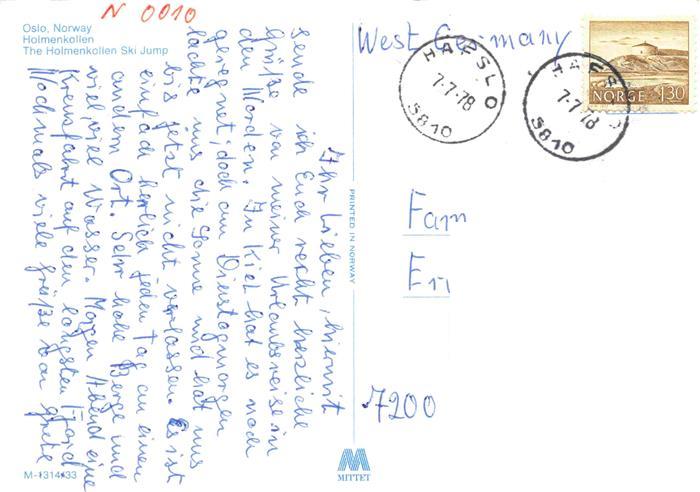 N 0010
Oslo, Norway
Holmenkollen
The Holmenkollen Ski Jump
Ihr Lieben, hiermit
sende ich Euch recht herzliche
Grüße von meiner Urlaubsreise in
den Norden. In Kiel hat es noch
geregnet, doch am Dienstagmorgen
lachte uns die Sonne und hat uns
bis jetzt nicht verlassen. Es ist
einfach herrlich jeden Tag an einen
andern Ort. Sehr hohe Berge und
viel, viel Wasser. Morgen Abend eine
Kreuzfahrt auf den längsten Fjord
Nochmals viele Grüße von Grete
M-1314-33
PRINTED IN NORWAY
MITTET
West Germany
HAFSLO
7-7-78
5810
HAFSLO
7-7-78
5810
NORGE 1,30
Fam
En
7200